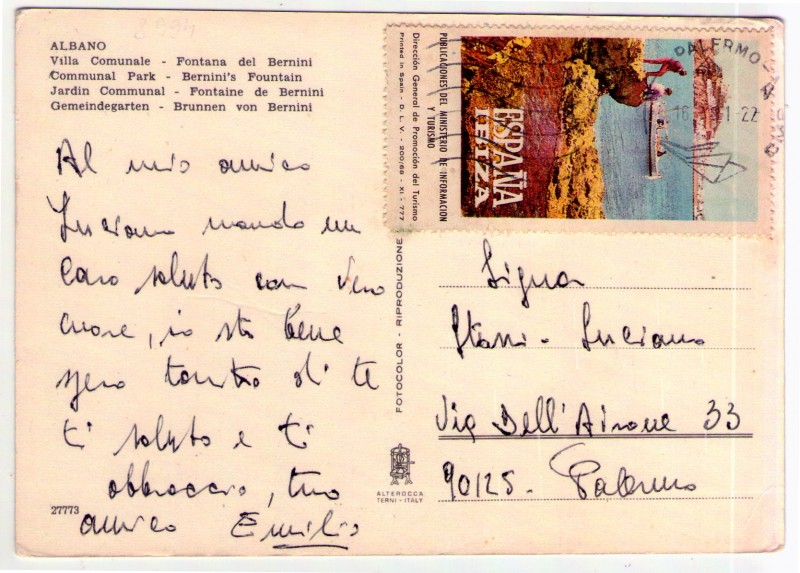 8994
ALBANO
Villa Comunale - Fontana del Bernini
Communal Park - Bernini's Fountain
Jardin Communal - Fontaine de Bernini
Gemeindegarten - Brunnen von Bernini
Al mio amico
Luciano mando un
caro saluto con vero
cuore, io sto bene
spero tanto di te
ti saluto e ti
abbraccio, tuo
amico Emilio
27773
FOTOCOLOR - RIPRODUZIONE
ALTEROCCA
TERNI - ITALY
PUBLICACIONES DEL MINISTERIO DE INFORMACION
Y TURISMO
Dirección General de Promoción del Turismo
Printed in Spain - D. L. V. - 200/68 - XI - 777
ESPAÑA
PALERMO
16
1-22
Signor
Luciano
Via Dell'Airone 33
90125 - Palermo